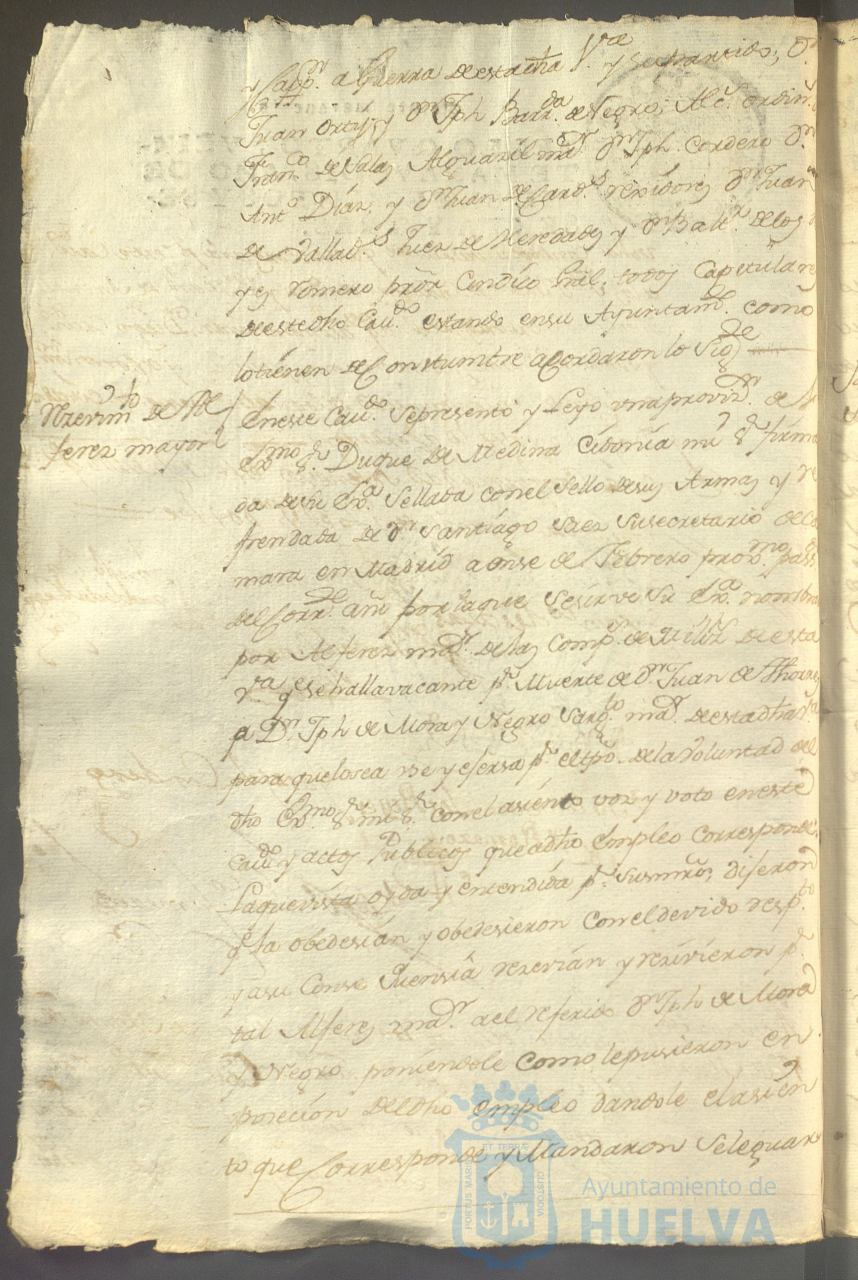 y Cap.n a Guerra de esta dha V.a y su partido; D.n
Juan Ortiz, y D.n Jph Barr.da de Negro; Alc.s ordin.s
Fran.co de Salas Alguazil m.or D.n Jph. Cordero D.n
Ant.o Díaz, y D.n Juan de Card.s rexidores D.n Juan
de Vallad.s Juez de Heredades y D.n Balt.r de los
yes Romero pror Cindico Gral, todos Capitulares
de este dho Cau.do estando en su Ayuntam.to como
lo tienen de Constumbre acordaron lo Sig.te
Rezevim.to de Al
ferez mayor
En este Cau.do se presentó y Leyo una proviz.on de
ex.mo S.r Duque de Medina Cidonia mi S.r firma
da de su Ex.a Sellada con el Sello de sus Armas y re
frendada de D.n Santiago Saez Su secretario de Ca
mara en Madrid a onse de Febrero prox.mo pas.do
del Corr.te año por la que se sirve Su Ex.a nombrar
por Alferez m.or de las Comp.s de Miliz.s de esta
V.a q.e se halla vacante p.r Muerte de D.n Juan de Thorres
a D.n Jph de Mora y Negro Sarg.to m.or de esta dha V.a
para que lo sea use y exersa p.r el tpo. de la Voluntad del
dho Ex.mo S.r mi S.r con el asiento voz y voto en este
Cau.do y actos Publicos que a dho Empleo Corresponde.
La que vista oyda y entendida p.r Sus mrds, dijeron
q.e la obedesian y obedesieron con el devido resp.to
y a su Conse quensia rezevian y rezivieron p.r
tal Alferez m.or a el referido D.n Jph de Mora
y Negro poniendole como le pusieron en
posecion del dho empleo dandole el asien
to que Corresponde y Mandaron se le guar
PORTUS MARIS ET TERRE CUSTODIA
Ayuntamiento de
HUELVA